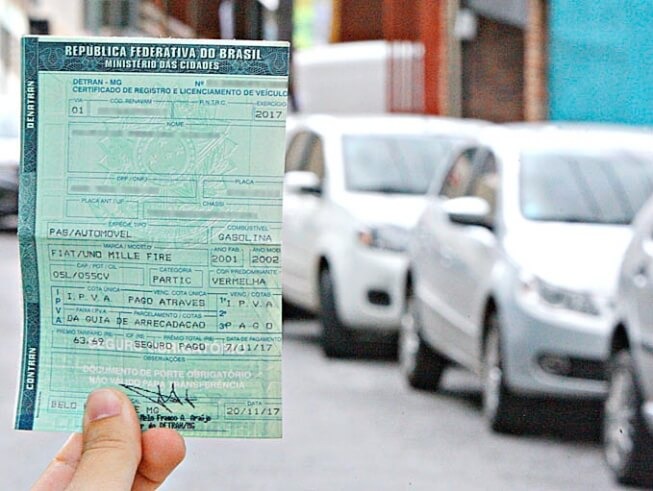 REPÚBLICA FEDERATIVA DO BRASIL
MINISTÉRIO DAS CIDADES
DENATRAN
DETRAN - MG Nº
CERTIFICADO DE REGISTRO E LICENCIAMENTO DE VEÍCULO
VIA CÓD. RENAVAM R.N.T.R.C. EXERCÍCIO
01 2017
NOME
CPF / CNPJ PLACA
PLACA ANT / UF CHASSI
ESPÉCIE TIPO COMBUSTÍVEL
PAS/AUTOMOVEL GASOLINA
MARCA / MODELO ANO FAB. ANO MOD
FIAT/UNO MILLE FIRE 2001 2002
CAP / POT / CIL CATEGORIA COR PREDOMINANTE
05L/055CV PARTIC VERMELHA
COTA ÚNICA VENC. COTA ÚNICA VENC. / COTAS
IPVA
I.P.V.A PAGO ATRAVES 1ª I.P.V.A
FAIXA I.P.V.A PARCELAMENTO / COTAS 2ª
DA GUIA DE ARRECADACAO 3ª P A G O
PRÊMIO TARIFÁRIO (R$) PRÊMIO TOTAL (R$) DATA DE PAGAMENTO
63.69 SEGURO PAGO 7/11/17
OBSERVAÇÕES
DOCUMENTO DE PORTE OBRIGATÓRIO
NÃO VÁLIDO PARA TRANSFERÊNCIA
CONTRAN
BELO MG DATA
20/11/17
DETRAN/MG